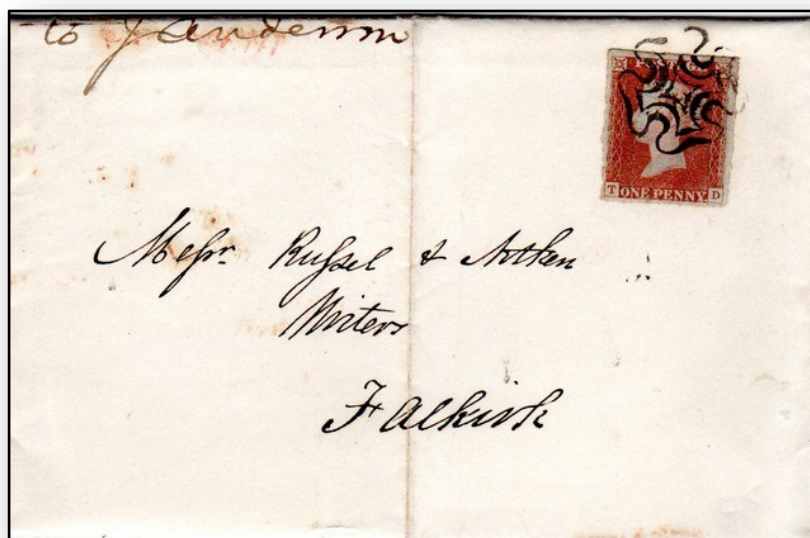 to J Anderson
POSTAGE
T ONE PENNY D
Messrs Russel & Aitken
Writers
Falkirk